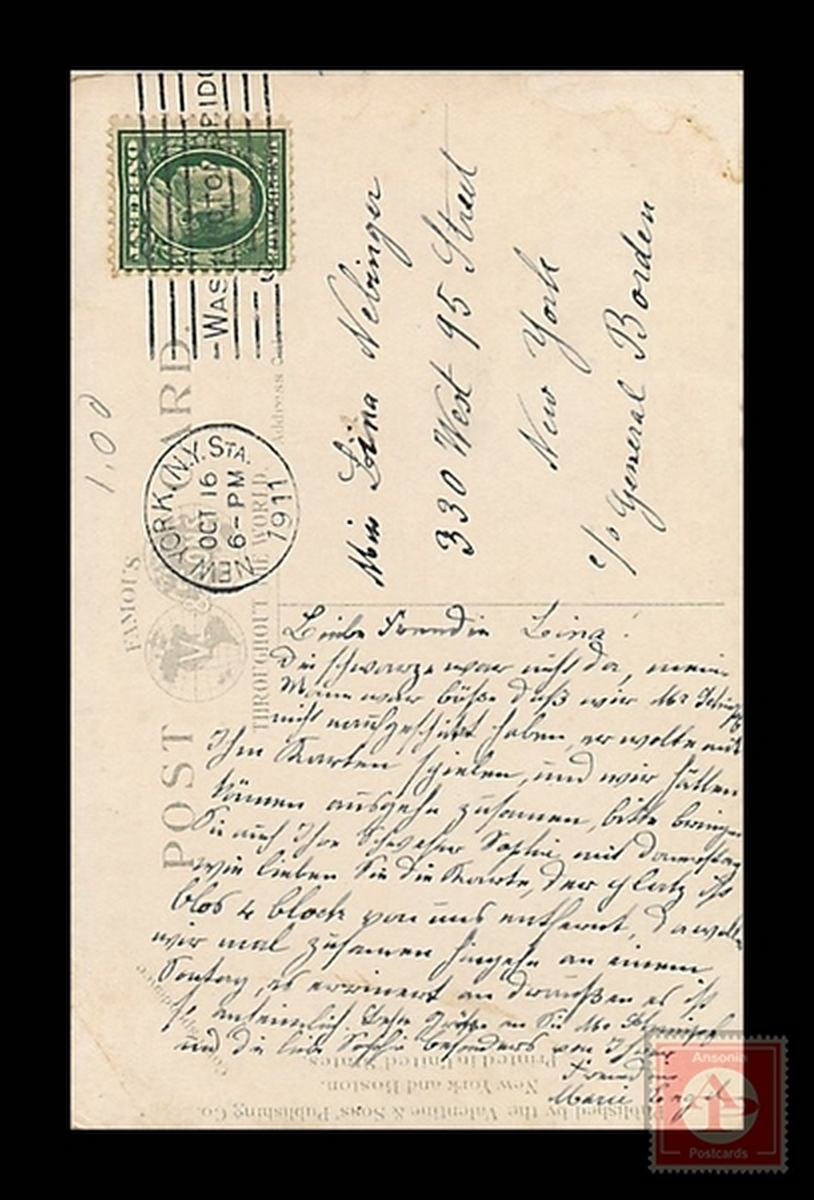 ONE CENT
WAS
NEW YORK, N.Y. STA.
OCT 16
6-PM
1911
1,00
FAMOUS
POST CARD.
THROUGHOUT THE WORLD.
Address
Miss Lina Nebinger
330 West 95 Street
New York
c/o General Borden
Liebe Freundin Lina!
Die schwarze war nicht da, mein
Mann war böße daß wir Mr
nicht raufgeschikt haben, er wolte mit
Ihm Karten spielen, und wir hätten
können ausgehn zusamen, bitte bringen
Sie auch Ihre Schwester Sophie mit Donerstag
wie lieben Sie die Karte, der Platz ist
blos 4 block von uns entfernt, da wollen
wir mal zusamen hingehn an einem
Sontag, es errinert an draußen es ist
so anheimlich. Beste Grüße an Sie Mr
und die liebe Sophie besonders von Ihrer
Freundin
Marie
Published by the Valentine & Sons' Publishing Co.
New York and Boston.
Printed in United States
Ansonia
Postcards